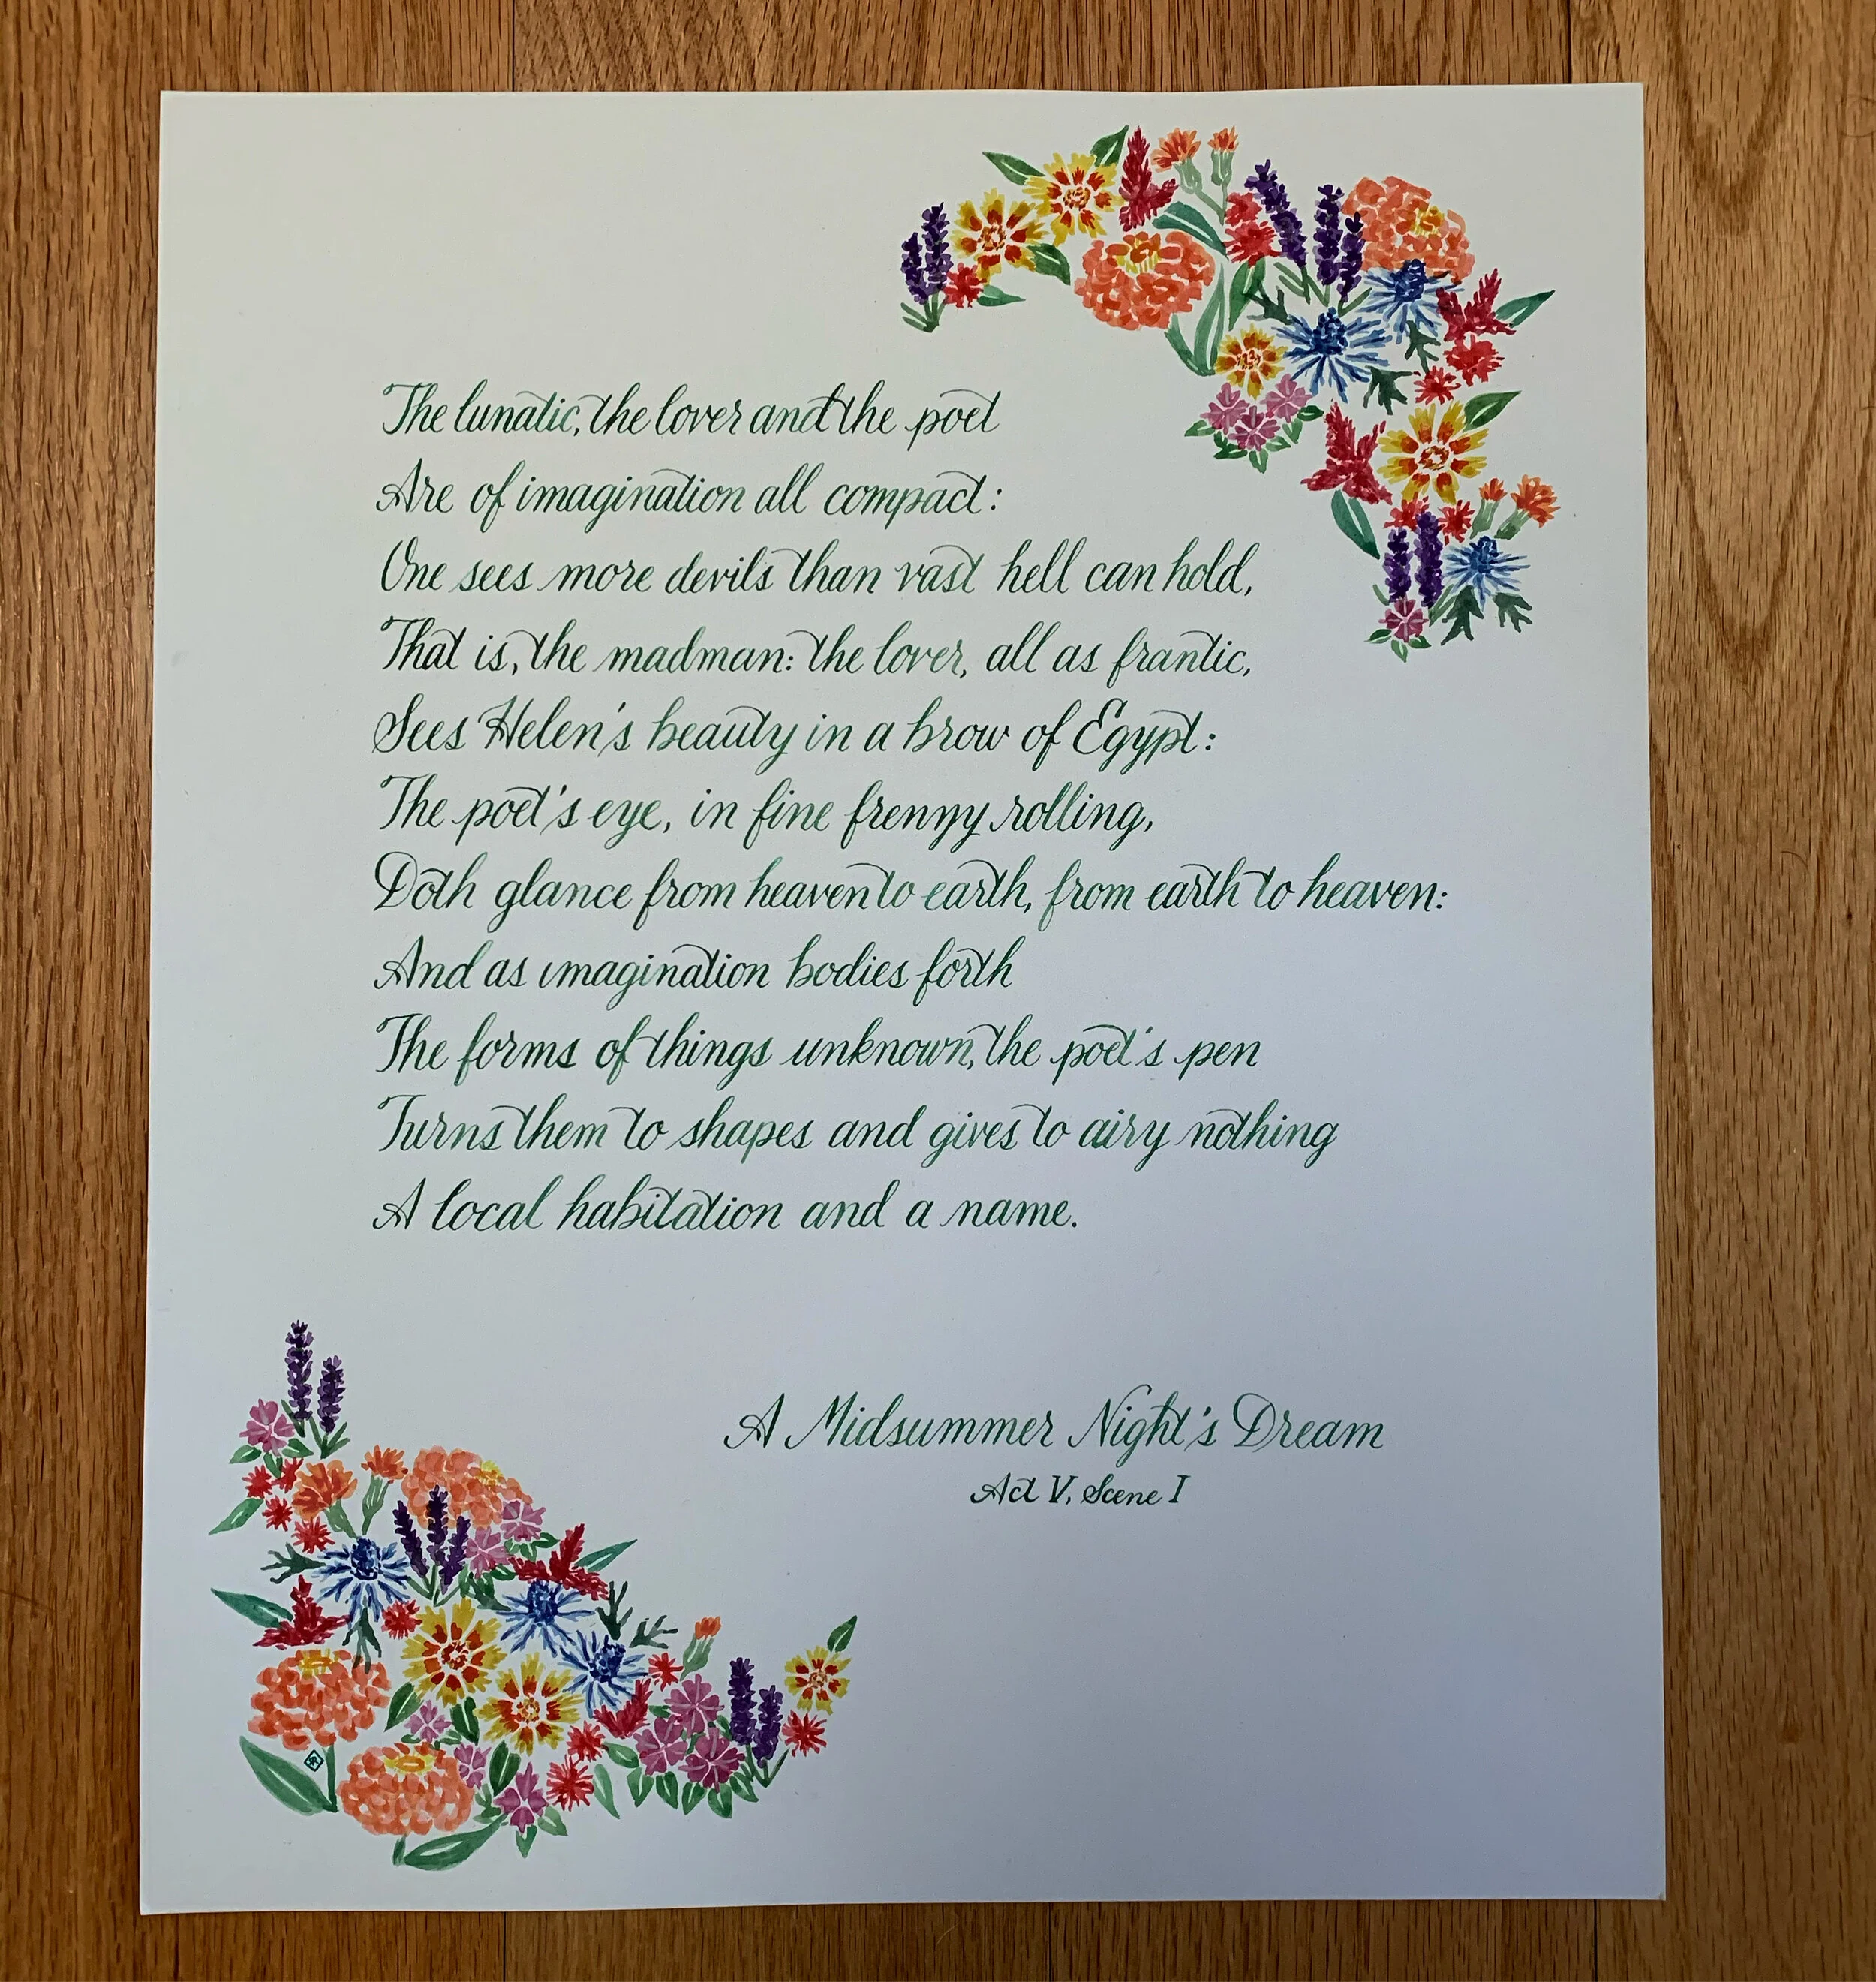 The lunatic, the lover and the poet
Are of imagination all compact:
One sees more devils than vast hell can hold,
That is, the madman: the lover, all as frantic,
Sees Helen's beauty in a brow of Egypt:
The poet's eye, in fine frenzy rolling,
Doth glance from heaven to earth, from earth to heaven:
And as imagination bodies forth
The forms of things unknown, the poet's pen
Turns them to shapes and gives to airy nothing
A local habitation and a name.
A Midsummer Night's Dream
Act V, Scene I